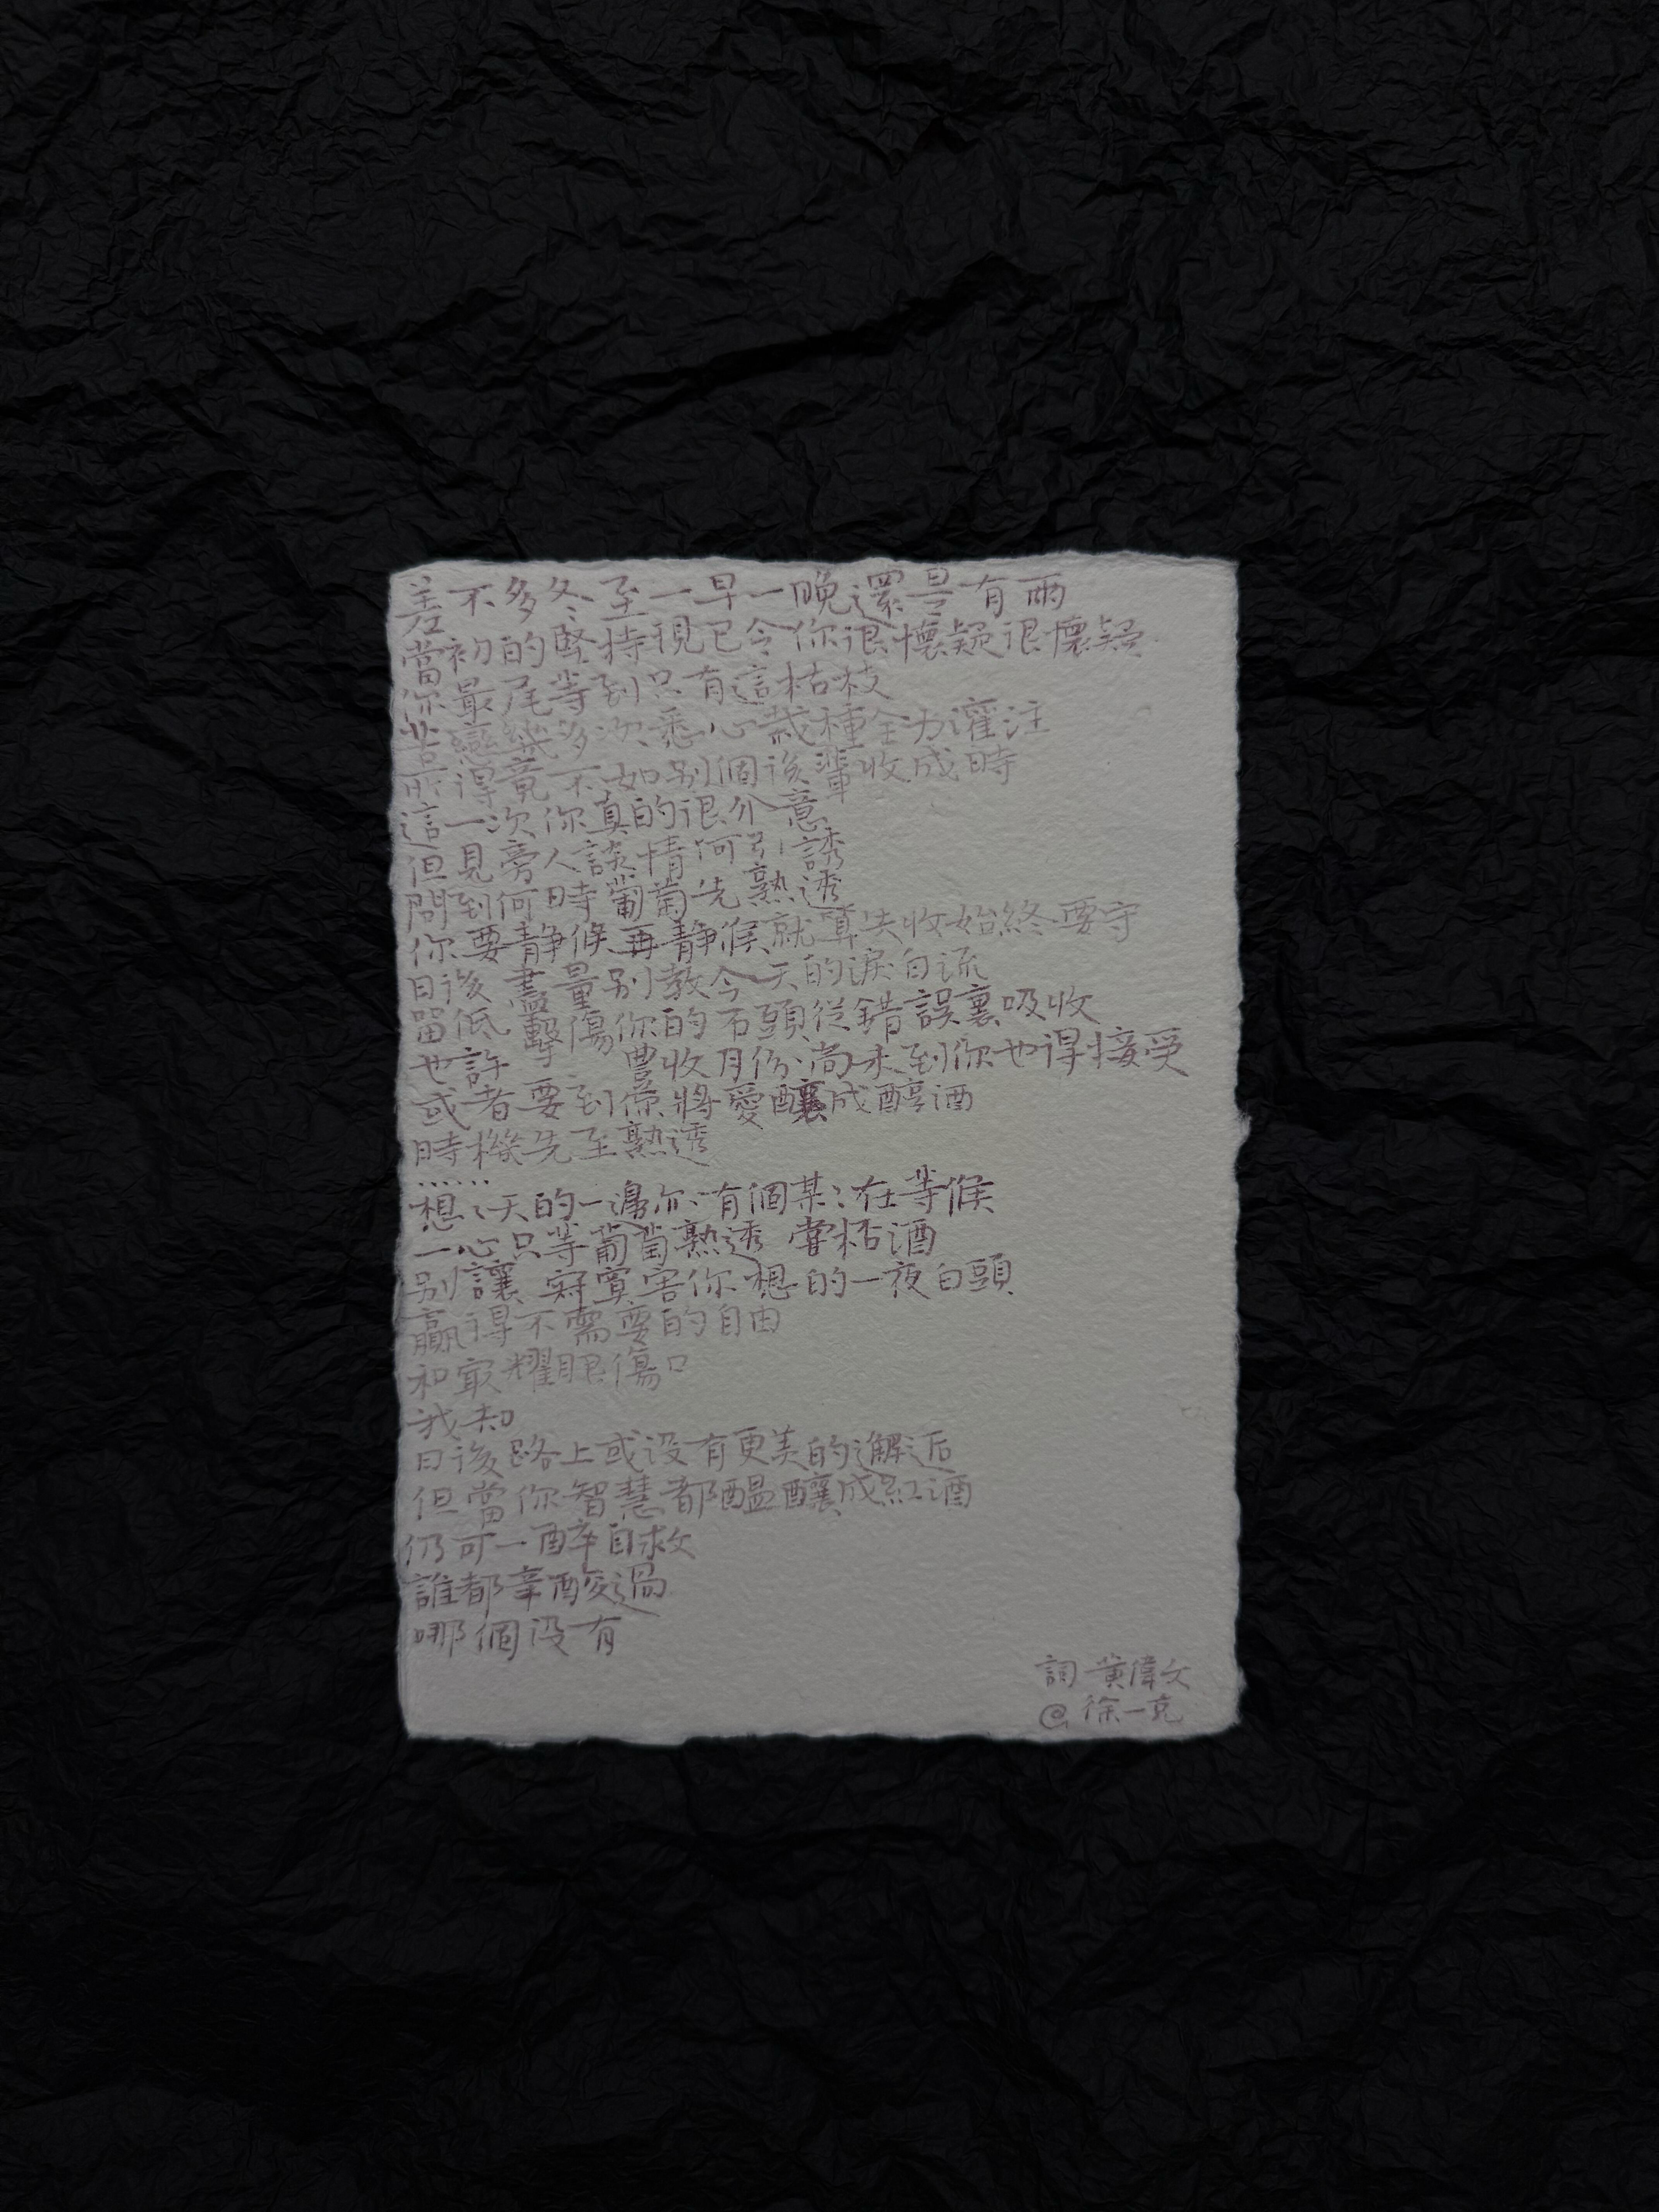 差不多冬至一早一晚還是有雨
當初的堅持現已令你很懷疑很懷疑
你最尾等到只有這枯枝
苦戀幾多次悉心栽種全力灌注
所得竟不如別個後輩收成時
這一次你真的很介意
但見旁人談情何引誘
問到何時葡萄先熟透
你要靜候再靜候就算失收始終要守
日後盡量別教今天的淚白流
留低擊傷你的石頭從錯誤裏吸收
也許豐收月份尚未到你也得接受
或者要到你將愛釀成醇酒
時機先至熟透
……
想:天的一邊亦有個某:在等候
一心只等葡萄熟透嘗杯酒
別讓寂寞害你想的一夜白頭
贏得不需要的自由
和最耀眼傷口
我知
日後路上或没有更美的邂逅
但當你智慧都醞釀成紅酒
仍可一醉自救
誰都辛酸過
哪個没有
詞 黃偉文
@徐一克